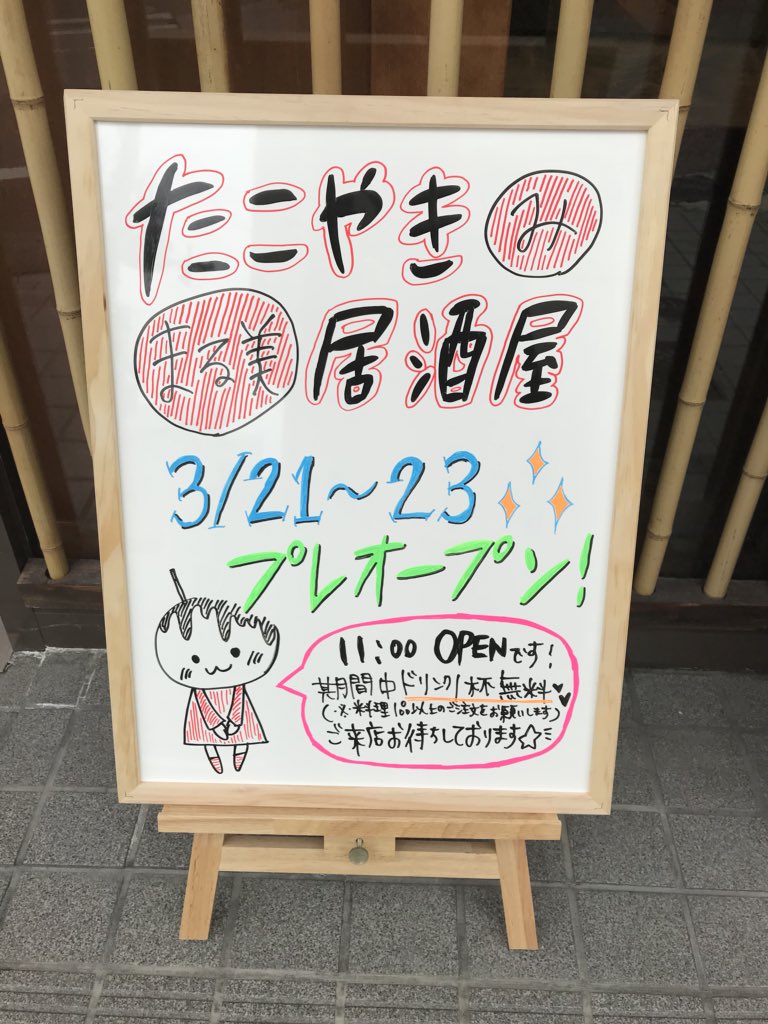 たこやき み
まる美 居酒屋
3/21～23
プレオープン!
11:00 OPENです!
期間中ドリンク1杯無料
(※料理1品以上のご注文をお願いします)
ご来店お待ちしております☆